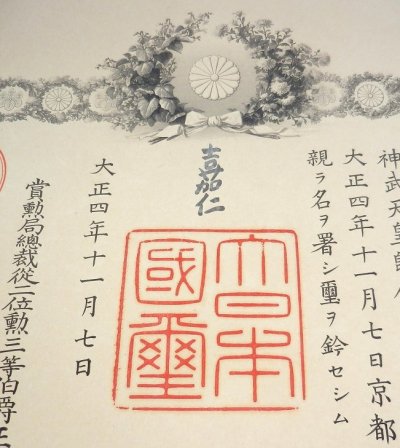 神武天皇即
大正四年十一月七日京都
親ラ名ヲ署シ璽ヲ鈐セシム
嘉仁
大日本
國璽
大正四年十一月七日
賞勲局總裁從二位勲三等伯爵正